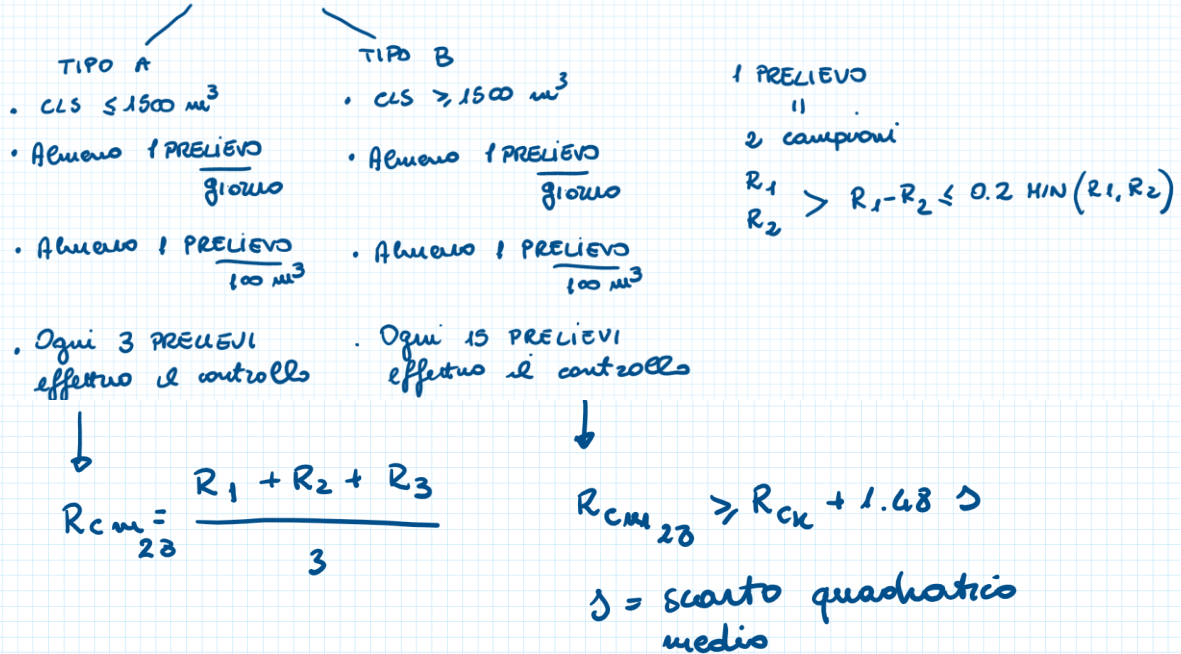 TIPO A
• CLS ≤ 1500 m³
• Almeno 1 PRELIEVO
giorno
• Almeno 1 PRELIEVO
100 m³
• Ogni 3 PRELIEVI
effettuo il controllo
Rcm28 = R1 + R2 + R3
3
TIPO B
• CLS ≥ 1500 m³
• Almeno 1 PRELIEVO
giorno
• Almeno 1 PRELIEVO
100 m³
• Ogni 15 PRELIEVI
effettuo il controllo
Rcm28 ≥ Rck + 1.48 s
s = scarto quadratico
medio
1 PRELIEVO
=
2 campioni
R1
R2 > R1-R2 ≤ 0.2 MIN(R1, R2)